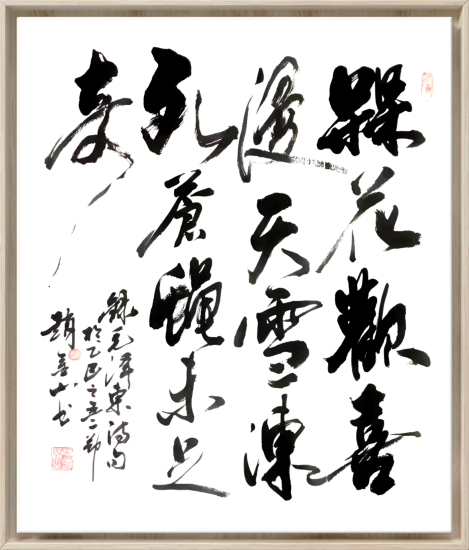 槑花歡喜
漫天雪凍
死蒼蠅未足
奇
錄毛澤東詩句
於乙巳之
趙善
書